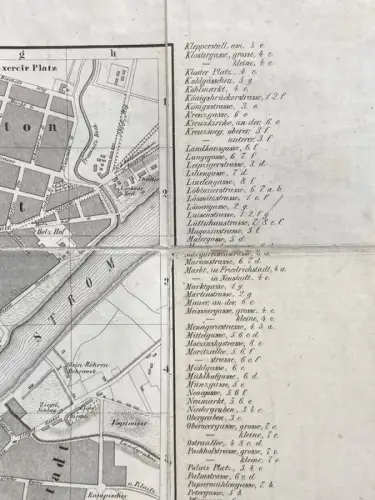 g h
xercir Platz
ton
t
1
2
3
4
5
Holz Hof
STROM
Stein Röhren
Bohrwerk
Ziegel
Schlag
Vogelwiese
tadt
Rappischer
Klepperstall, am, 5. e.
Klostergasse, grosse, 4. e.
— kleine, 4. e.
Kloster Platz, 4. e.
Kohlgässchen, 5. g
Kohlmarkt, 4. e.
Königsbrückerstrasse, 1. 2. f
Königstrasse, 3. e.
Kreuzgasse, 6. e
Kreuzkirche, an der, 6. e.
Kreuzweg, oberer, 3. f
— unterer 3. f
Landhausgasse, 6. f
Langegasse, 6. 7. f
Leipzigerstrasse, 3. d.
Liliengasse, 7. d
Lindengasse, 8. f
Löbtauerstrasse, 6. 7. a. b.
Lössnitzstrasse, 1. e. f
Löwengasse, 2. g
Luisenstrasse, 1. 2. f. g
Lüttichaustrasse, 7. 8. e. f.
Magazinstrasse, 3. f
Malergasse, 5. d.
Margarethenstrasse, 6. d
Marienstrasse, 6. 7. d.
Markt, in Friedrichstadt, 4. a
— in Neustadt, 4. e.
Marktgasse, 1. g
Martinstrasse, 2. g
Mauer, an der, 6. e
Meissnergasse, grosse, 4. e.
— kleine, 4. e.
Menagerestrasse, 4. 5. a.
Mittelgasse, 5. 6. c. d
Moritzallee, 5. 6. f
— strasse, 6. e. f
Mühlgasse, 6. e.
Mühlhofgasse, 6. d.
Münzgasse, 5. e.
Neugasse, 5. 6. f
Neumarkt, 5. 6. e.
Niedergraben, 3. 4. e.
Obergraben, 3. e.
Oberseergasse, grosse, 7. e
— kleine, 7. e.
Ostraallee, 4. 5. c. d.
Packhofstrasse, grosse, 4. d.
— kleine, 4. d.
Palais Platz, 3. 4. e
Palmstrasse, 6. c. d.
Papiermühlengasse, 7. b.
Petersgasse, 5. b